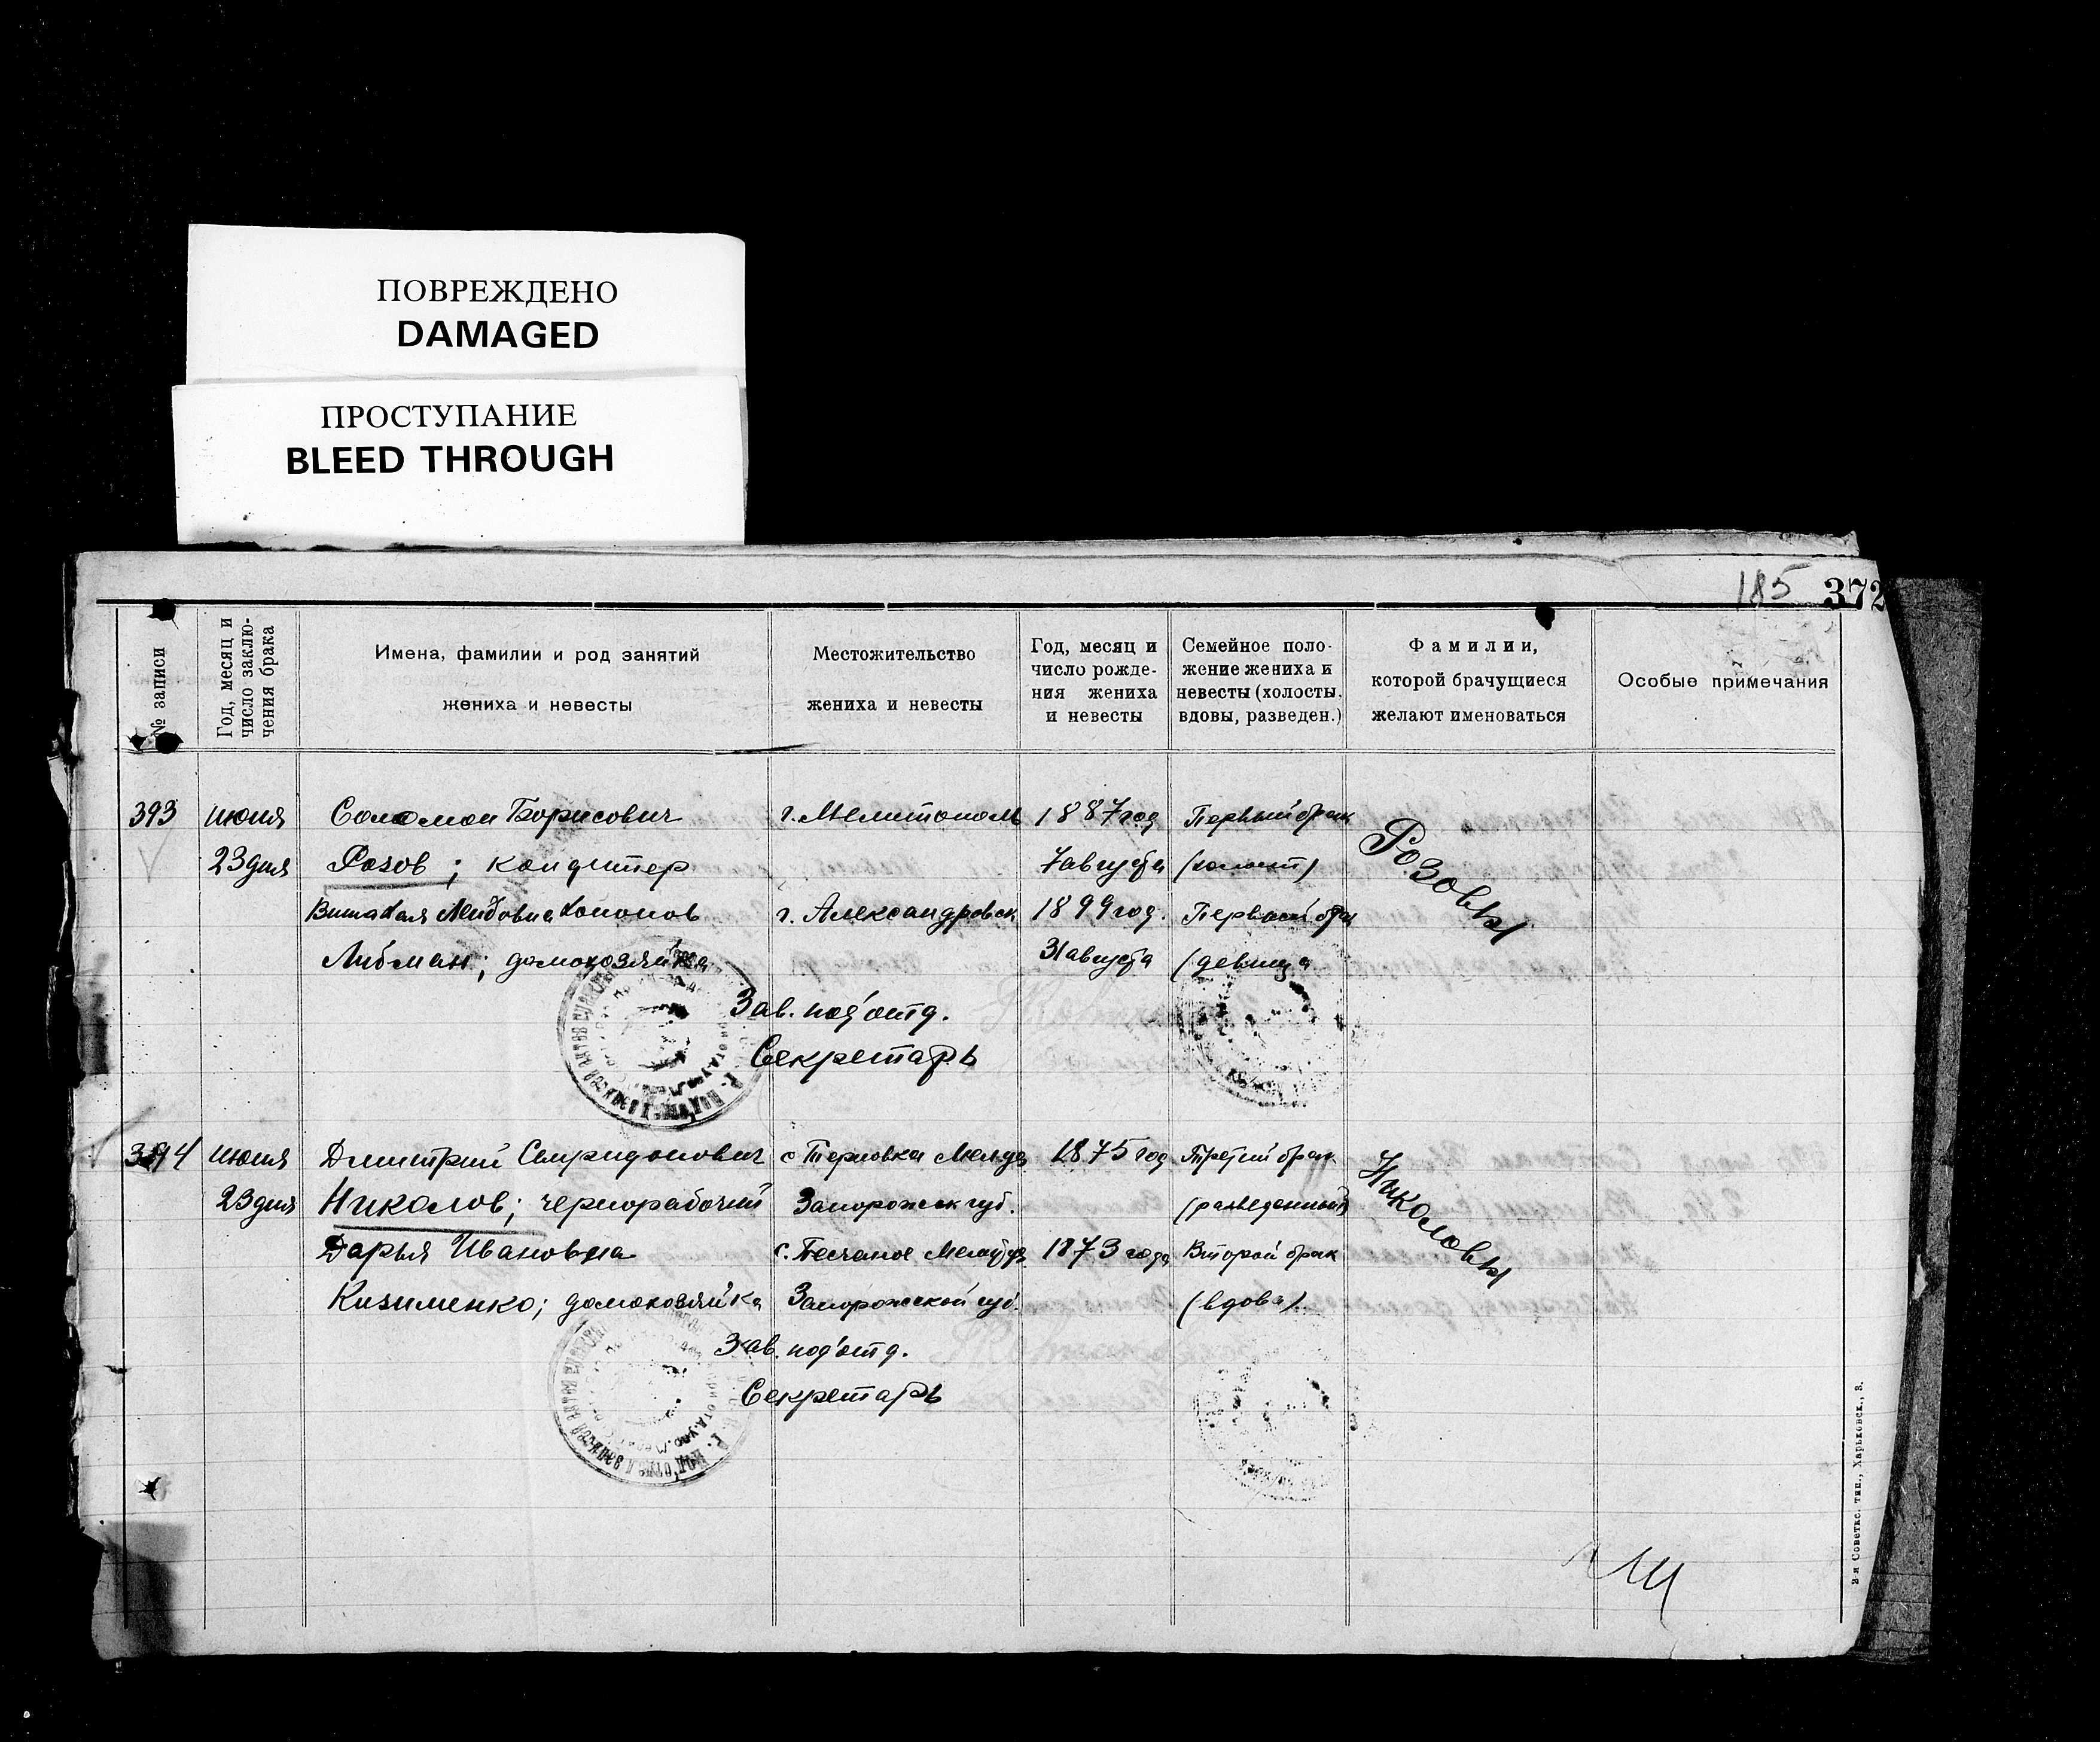 ПОВРЕЖДЕНО
DAMAGED
ПРОСТУПАНИЕ
BLEED THROUGH
185 372
№ записи
Год, месяц и
число заклю-
чения брака
Имена, фамилии и род занятий
жениха и невесты
Местожительство
жениха и невесты
Год, месяц и
число рожде-
ния жениха
и невесты
Семейное поло-
жение жениха и
невесты (холосты,
вдовы, разведен.)
Фамилии,
которой брачущиеся
желают именоваться
Особые примечания
393 июня Соломон Борисович г. Мелитополь 1887 год Первый брак
23 дня Розов; кондитер 7 августа (холост) Розовы
г. Александровск 1899 год. Первый брак
Либман; домохозяйка 31 августа (девица
Зав. под'отд.
Секретарь
394 июня Дмитрий Спиридонович с Терновка 1875 год Третий брак
23 дня Николов; чернорабочий Запорожск губ. (разведенный) Николовы
Дарья Ивановна с. Песчаное 1873 года Второй брак
Кизименко; домохозяйка Запорожской губ. (вдова).
Зав. под'отд.
Секретарь
2-я Советск. тип., Харьковск., 3.